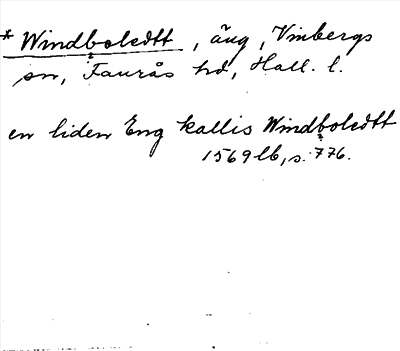 * Windboledtt, äng, Vinbergs
sn, Faurås hd, Hall. l.
en liden Eng kallis Windboledtt
1569 lb, s. 776.